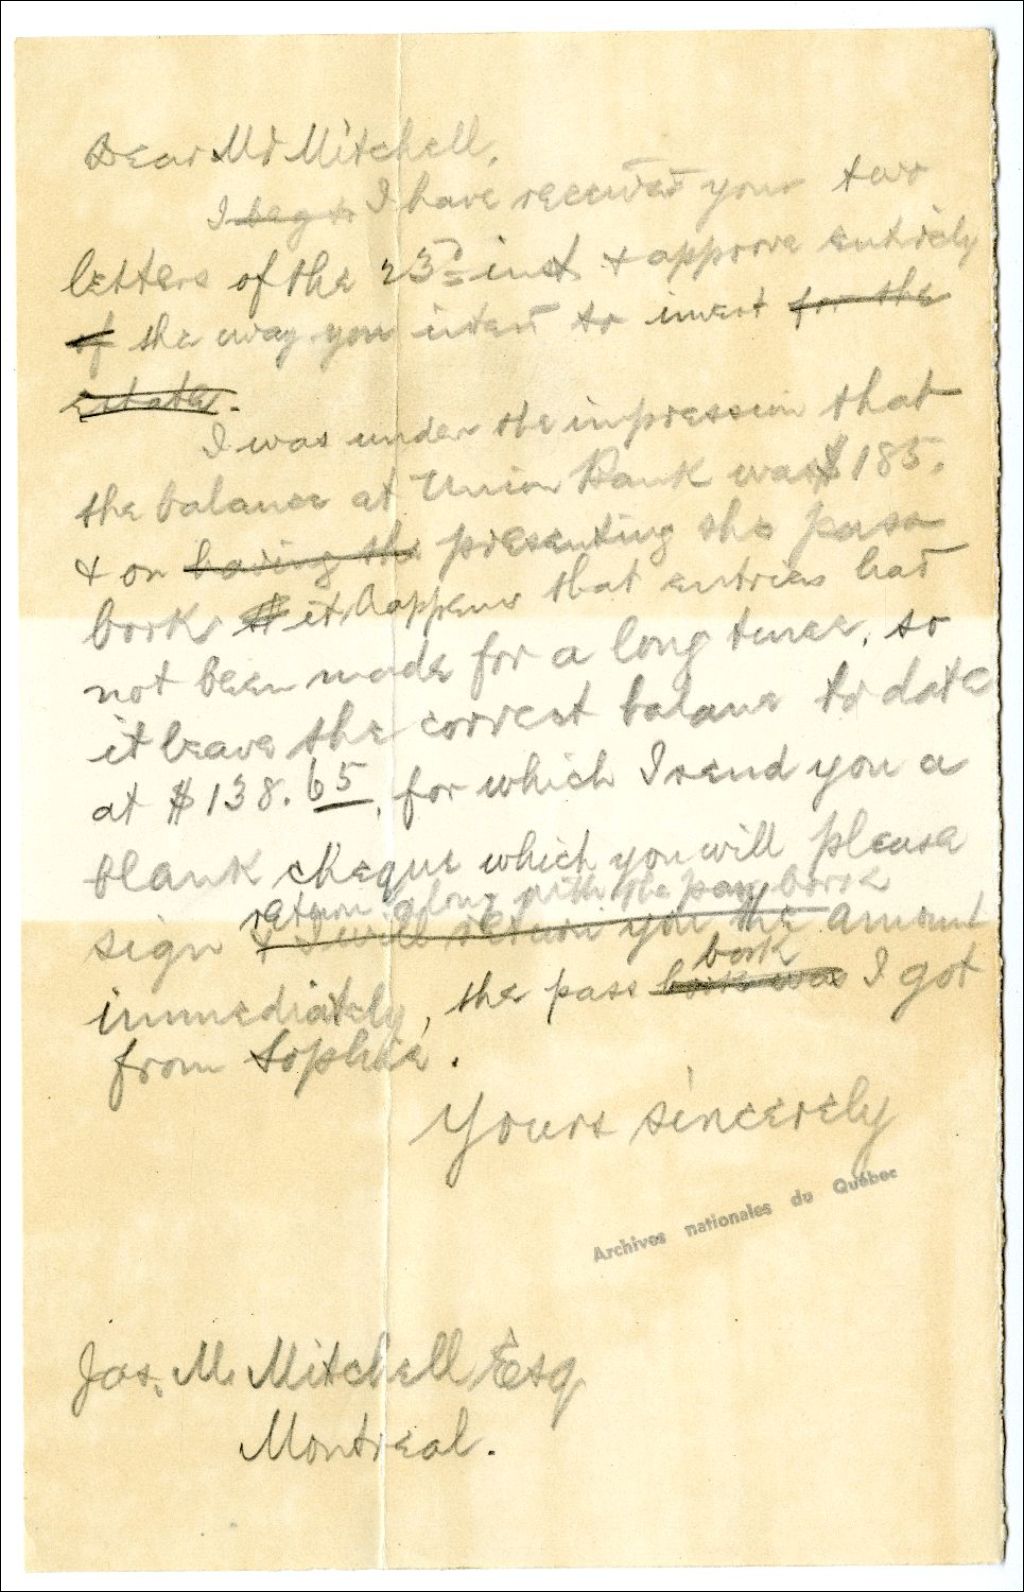 Dear Mr Mitchell,
I beg to I have received your two
letters of the 23d inst & approve entirely
of the way you intend to invest for the
estate.
I was under the impression that
the balance at Union Bank was $185.
& on having the presenting the pass
book it happens that entries had
not been made for a long time, so
it leave the correct balance to date
at $138.65, for which I send you a
blank cheque which you will please
return along with the pass book
sign & I will return you the amount
book
immediately, the pass book was I got
from Sophie.
Yours sincerely
Archives nationales du Québec
Jas. M. Mitchell Esq
Montreal.